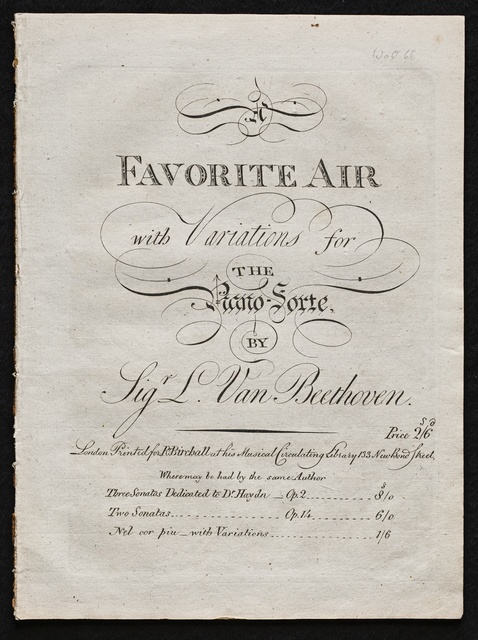 WoO 66
A
FAVORITE AIR
with Variations for
THE
Piano-Forte,
BY
Sigr. L. Van Beethoven.
Price 2s/6d
London Printed for R. Birchall at his Musical Circulating Library 133 New Bond Street.
Where may be had by the same Author
Three Sonatas Dedicated to Dr. Haydn _ Op. 2 ........ 8s/0
Two Sonatas ................ Op. 14 ........ 6/0
Nel cor piu _ with Variations ................ 1/6